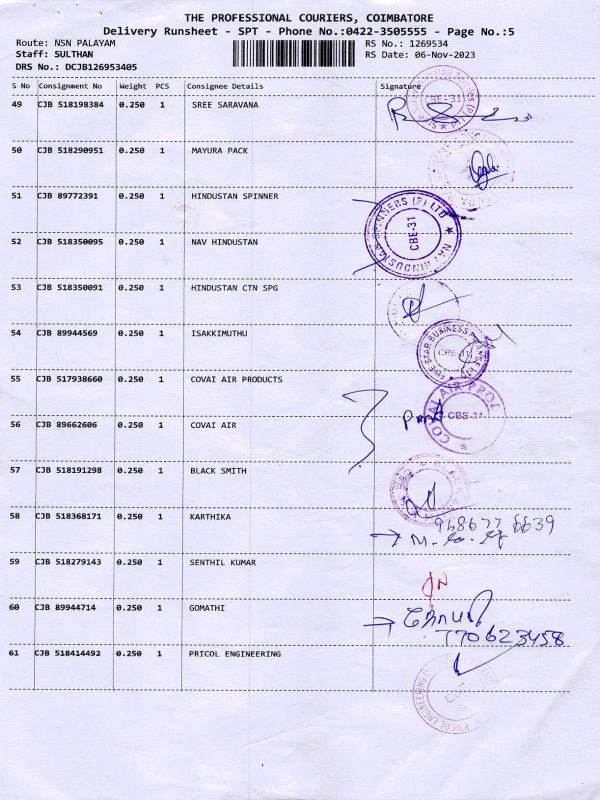 THE PROFESSIONAL COURIERS, COIMBATORE
Delivery Runsheet - SPT - Phone No.:0422-3505555 - Page No.:5
Route: NSN PALAYAM RS No.: 1269534
Staff: SULTHAN RS Date: 06-Nov-2023
DRS No.: DCJB126953405
S No Consignment No Weight PCS Consignee Details Signature
49 CJB 518198384 0.250 1 SREE SARAVANA
CBE-31
50 CJB 518290951 0.250 1 MAYURA PACK
51 CJB 89772391 0.250 1 HINDUSTAN SPINNER
CBE-31
52 CJB 518350095 0.250 1 NAV HINDUSTAN
53 CJB 518350091 0.250 1 HINDUSTAN CTN SPG
54 CJB 89944569 0.250 1 ISAKKIMUTHU
FIVE STAR BUSINESS
CBE-31
55 CJB 517938660 0.250 1 COVAI AIR PRODUCTS
COVAI AIR PROD
CBE-31
56 CJB 89662606 0.250 1 COVAI AIR
57 CJB 518191298 0.250 1 BLACK SMITH
58 CJB 518368171 0.250 1 KARTHIKA
59 CJB 518279143 0.250 1 SENTHIL KUMAR
60 CJB 89944714 0.250 1 GOMATHI
770623458
61 CJB 518414492 0.250 1 PRICOL ENGINEERING
PRICOL ENGINEERING